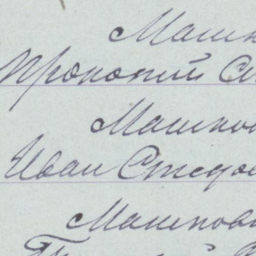 Машк
Прокопий Ст
Машков
Иван Стефа
Машков